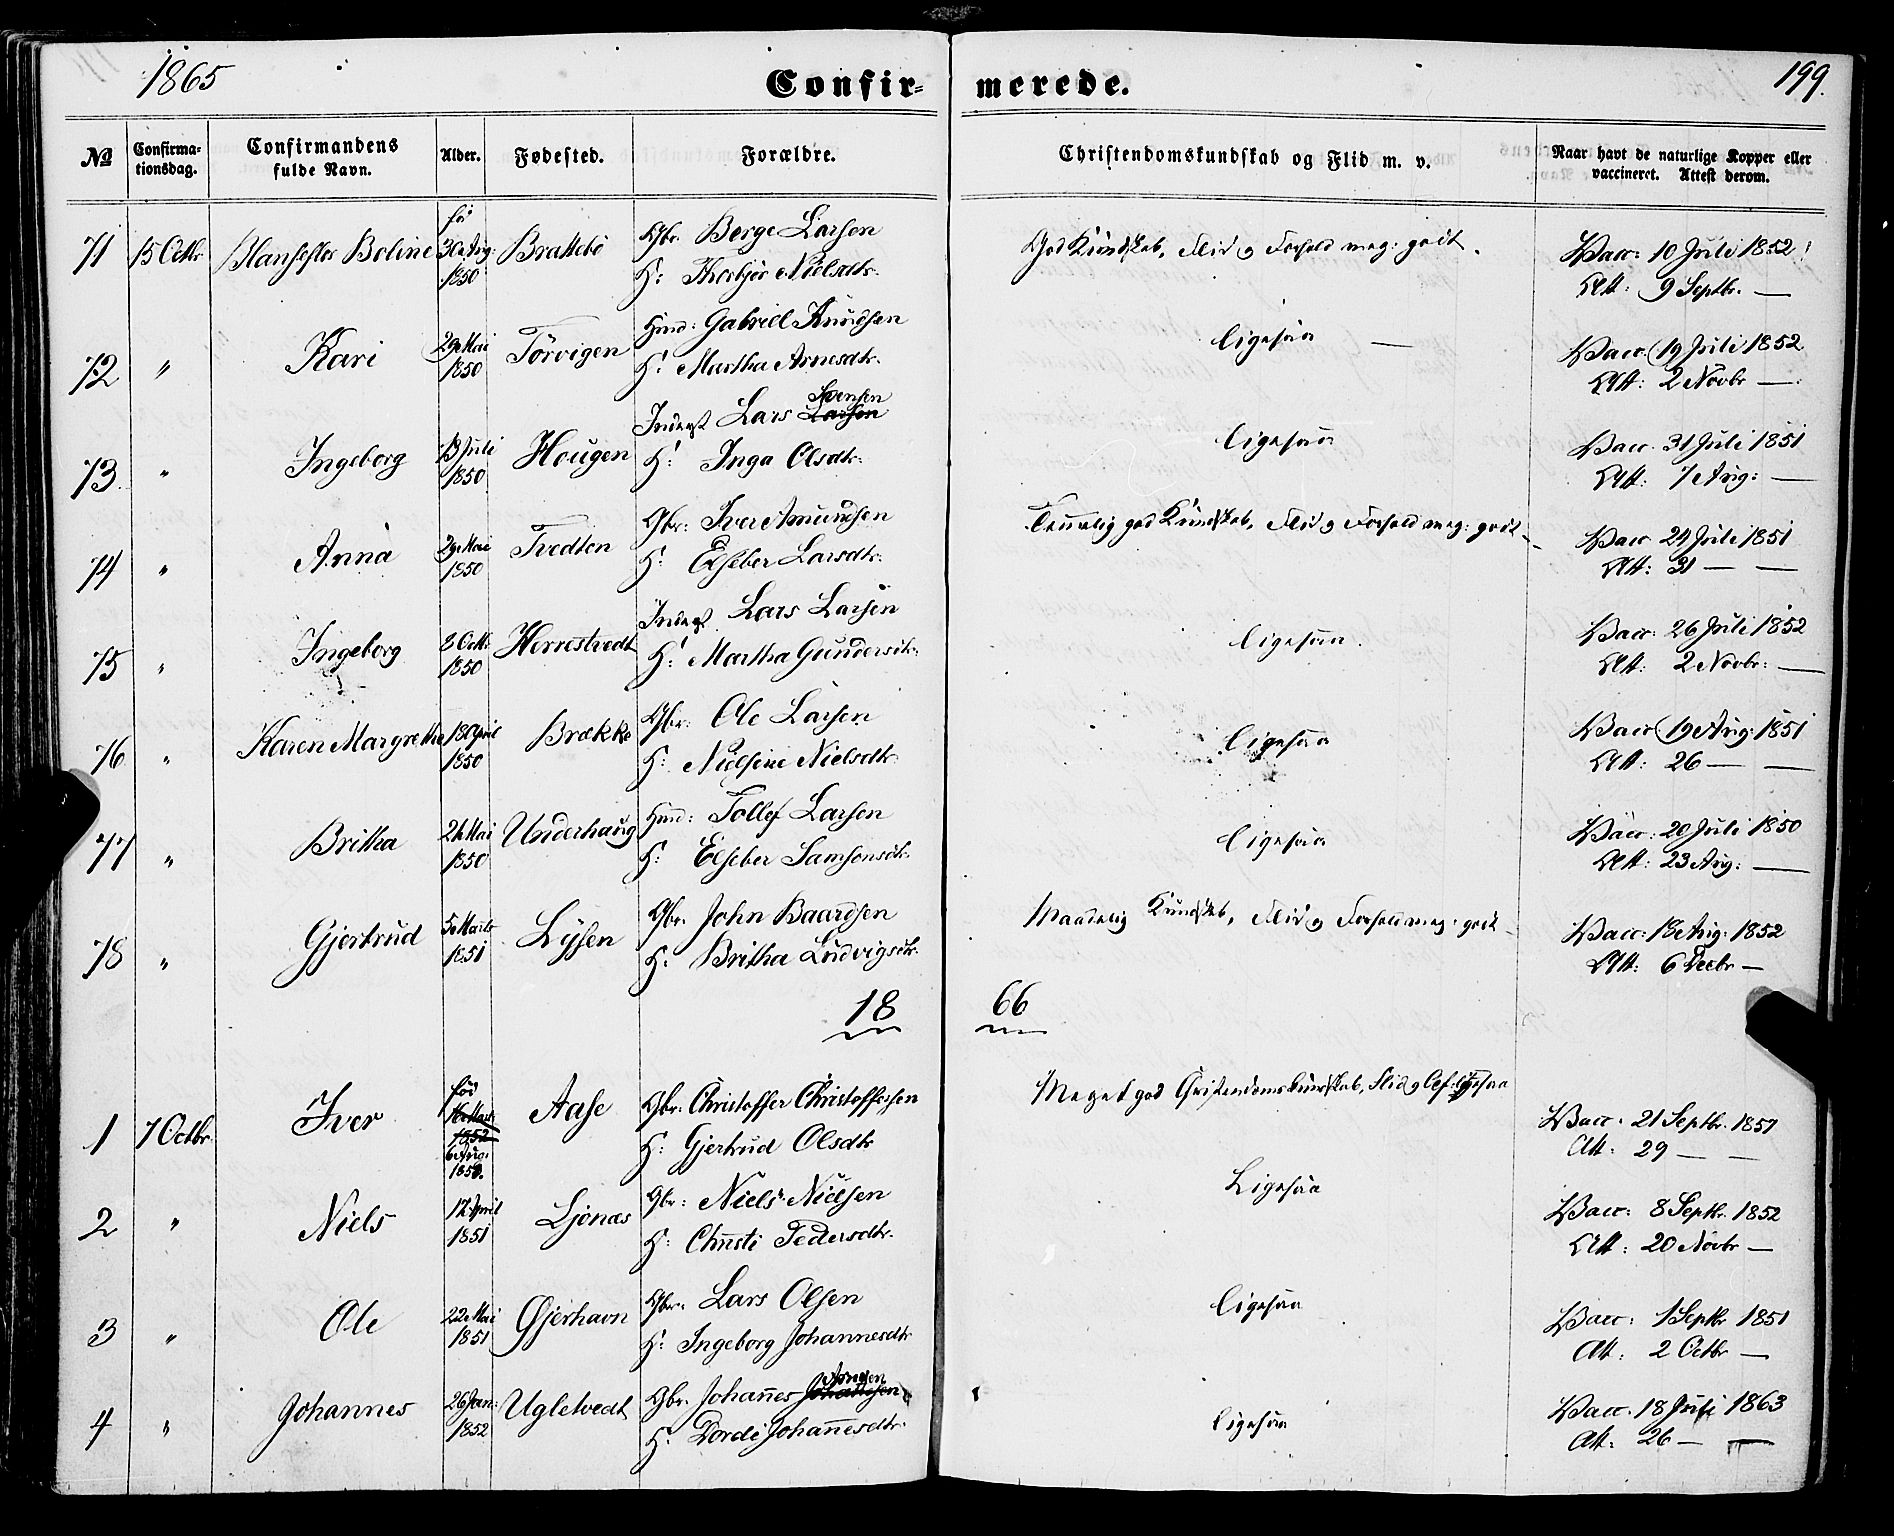 1865
Confirmerede.
199.
№ Confirmationsdag. Confirmandens fulde Navn. Alder. Fødested. Forældre. Christendomskundskab og Flid m. v. Naar havt de naturlige Kopper eller vaccineret. Attest derom.
71 15 Octbr Boline 30 Aug: 1850 Brattebö Gbr. Berge Larsen God Kundskab, Flid og Forhold meg: godt. Vacc: 10 Juli 1852
H: Thorbjør Nielsdtr. Att: 9 Septbr. —
72 " Kari 29 Mai 1850 Törvigen Hmd: Gabriel Knudsen Ligesaa — Vacc 19 Juli 1852
H: Martha Arnesdtr. Att: 2 Novbr —
73 " Ingeborg 13 Juli 1850 Hougen Inderst Lars Larsen Svensen Ligesaa Vacc. 31 Juli 1851
H: Inga Olsdtr. Att: 7 Aug: —
74 " Anna 29 Mai 1850 Tvedten Gbr: Iver Amundsen Temmelig god Kundskab, Flid og Forhold meg: godt Vacc 24 Juli 1851
H: Elseber Larsdtr. Att: 31 — —
75 " Ingeborg 8 Octbr 1850 Herrestvedt Inderst Lars Larsen Ligesaa. Vacc: 26 Juli 1852
H: Martha Gundersdtr. Att: 2 Novbr: —
76 " Karen Margrethe 18 April 1850 Brække Gbr: Ole Larsen Ligesaa Vacc 19 Aug: 1851
H: Nielsine Nielsdtr. Att: 26 — —
77 " Britha 24 Mai 1850 Underhaug Hmd: Tollef Larsen Ligesaa Vacc: 20 Juli 1850
H: Elseber Samsonsdtr. Att: 23 Aug: —
78 " Gjertrud 5 Marts 1851 Lysen Gbr. John Baardsen Maadelig Kundskab, Flid og Forhold meg: godt Vacc: 18 Aug: 1852
H: Britha Ludvigsdtr. Att: 6 Decbr —
18 66
1 7 Octbr. Iver född 1852 6 Aug: 1850. Aase Gbr: Christoffer Christoffersen Meget god Christendomskundskab, Flid og Opf: ligesaa Vacc: 21 Septbr. 1857
H: Gjertrud Olsdtr Att: 29 — —
2 " Niels 12 April 1851 Ljönæs Gbr: Niels Nielsen Ligesaa Vacc: 8 Septbr. 1852
H: Christi Pedersdtr. Att: 20 Novbr —
3 " Ole 22 Mai 1851 Gjerhavn Gbr: Lars Olsen Ligesaa Vacc: 1 Septbr 1851
H: Ingeborg Johannesdtr Att: 2 Octbr —
4 " Johannes 26 Jan: 1852 Ugletvedt Gbr. Johannes Johannesen Ligesaa Vacc. 18 Juli 1863
H: Dordi Johannesdtr. Att: 26 — —